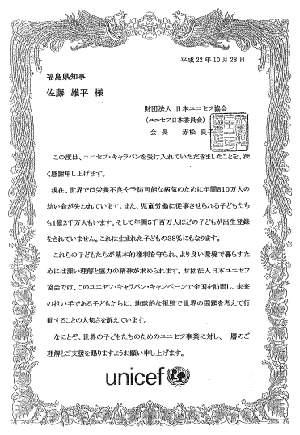 平成22年10月28日
福島県知事
佐藤 雄平 様
財団法人 日本ユニセフ協会
(ユニセフ日本委員会)
会長 赤松 良子
この度は、ユニセフ・キャラバンを受け入れていただきましたことを、深
く感謝申し上げます。
現在、世界では栄養不良や予防可能な病気のために年間810万人の
幼い命が失われています。また、児童労働に従事させられる子どもたち
も1億5千万人もいます。そして年間5千百万人ほどの子どもが出生登録
をされていません。これは生まれた子どもの38%にもなります。
これらの子どもたちが基本的権利を守られ、より良い環境で暮らすた
めには深い理解と協力の精神が求められます。財団法人日本ユニセフ
協会では、このユニセフ・キャラバン・キャンペーンで全国を訪問し、未来
の担い手である子どもたちに、地球的な視野で世界の問題を考えて行
動することの大切さを訴えています。
なにとぞ、世界の子どもたちのためのユニセフ事業に対し、一層のご
理解とご支援を賜りますようお願い申し上げます。
unicef